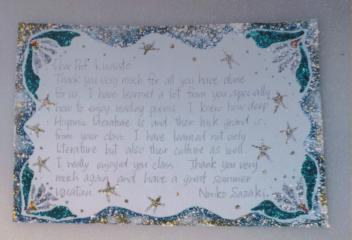 Dear Prof.
Thank you very much for all you have done
for us. I have learned a lot from you, specially
how to enjoy reading poems. I knew how deep
Hispanic literature is and their back ground is.
from your class I have learned not only
literature but also their culture as well.
I really enjoyed you class. Thank you very
much again and have a great summer
vacation. Noriko Sazaki